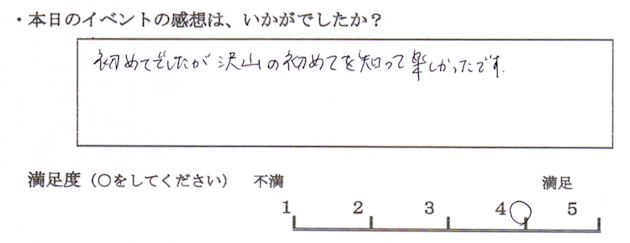 ・本日のイベントの感想は、いかがでしたか？
初めてでしたが沢山の初めてを知って楽しかったです。
満足度（○をしてください） 不満 満足
1 2 3 4 5